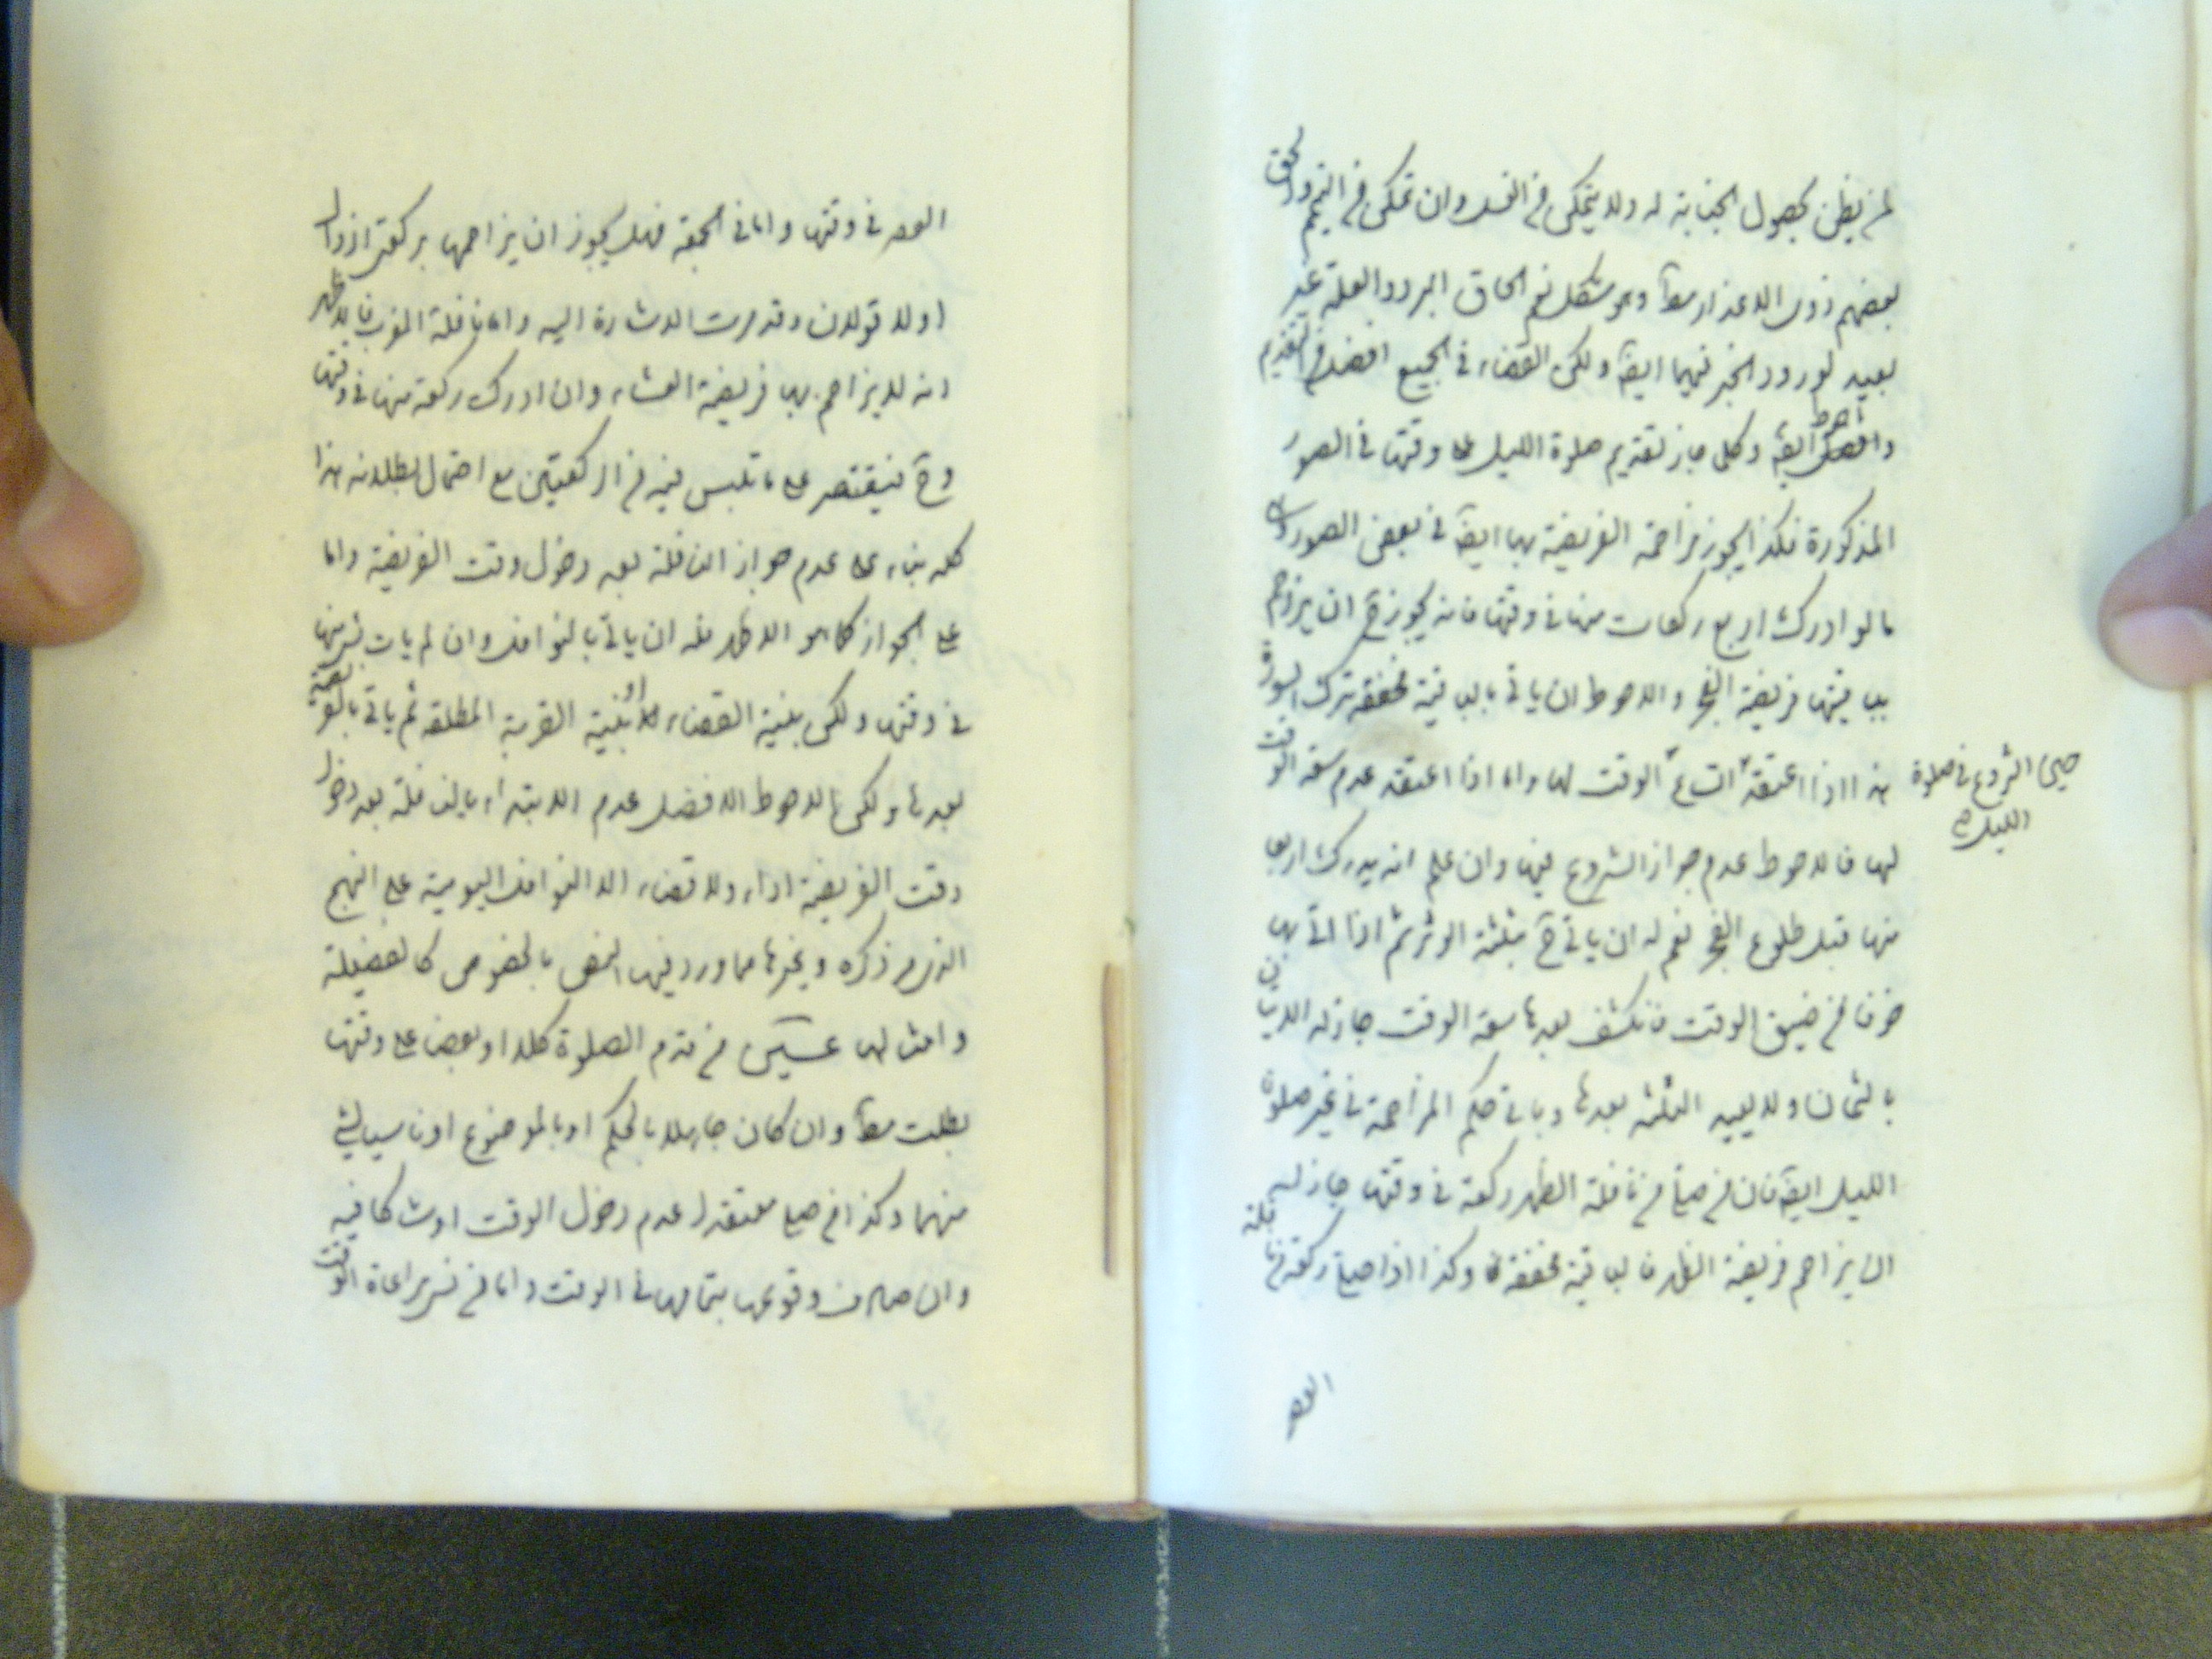 لمن يظن بحصول الجنابة له ولا يتمكن من الغسل وان تمكن من التيمم والحق
بعضهم ذوى الاعذار مطلقا وهو مشكل نعم الحاق البرد والعلة غير
بعيد لورود الخبر فيهما ايضا ولكن القضاء فى الجميع افضل من التقديم
واحوط ايضا وكلما جاز تقديم صلوة الليل على وقتها فى الصور
المذكورة فكذا يجوز مزاحمة الفريضة بها ايضا فى بعض الصور
ما لو ادرك اربع ركعات منها فى وقتها فانه يجوز ح ان يزاحم
بباقيتها فريضة الفجر والاحوط ان ياتى بالباقية مخففة بترك السورة
هذا اذا اعتقد اتساع الوقت لها واما اذا اعتقد عدم سعة الوقت
حين الشروع فى صلوة
الليل صح
لها فالاحوط عدم جواز الشروع فيها وان علم انه يدرك اربعا
منها قبل طلوع الفجر نعم له ان ياتى ح بثلثة الوتر ثم اذا اتى بها
خوفا من ضيق الوقت فانكشف بعدها سعة الوقت جاز له الاتيان
بالثمان ولا يعيد الثلثة بعدها وباتى حكم المزاحمة فى غير صلوة
الليل ايضا فان من صلى من نافلة الظهر ركعة فى وقتها جاز له
ان يزاحم فريضة الظهر بالباقية مخففة وكذا اذا صلى ركعة من نافلة
العصر
العصر فى وقتها واما فى الجمعة فهل يجوز ان يزاحمها بركعتى الزوال
او لا قولان وقد مرت الاشارة اليه واما نافلة المغرب فالاظهر
انه لا يزاحم بها فريضة العشاء وان ادرك ركعة منها فى وقتها
وح فيقتصر على ما تلبس فيه من الركعتين مع احتمال بطلانه هذا
كله بناء على عدم جواز النافلة بعد دخول وقت الفريضة واما
على الجواز كما هو الاظهر فله ان ياتى بالنوافل وان لم يات بشئ منها
فى وقتها ولكن بنية القضاء او بنية القربة المطلقة ثم ياتى بالفريضة
بعدها ولكن الاحوط الافضل عدم الابتداء بالنافلة بعد دخول
وقت الفريضة اداء ولا قضاء الا النوافل اليومية على النهج
الذى مر ذكره وغيرها مما ورد فيها النص بالخصوص كالغفيلة
وامثالها من قدم الصلوة كلا او بعضا على وقتها
بطلت مطلقا وان كان جاهلا بالحكم او بالموضوع او ناسيا لشئ
منهما وكذا من صلى معتقدا عدم دخول الوقت او شاكا فيه
وان صادف وقوعها بتمامها فى الوقت واما من نسى مراعاة الوقت